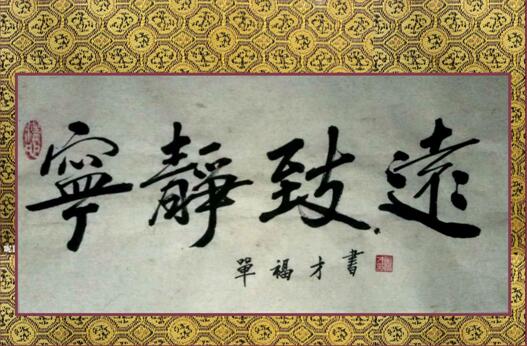 寧靜致遠
單福才書